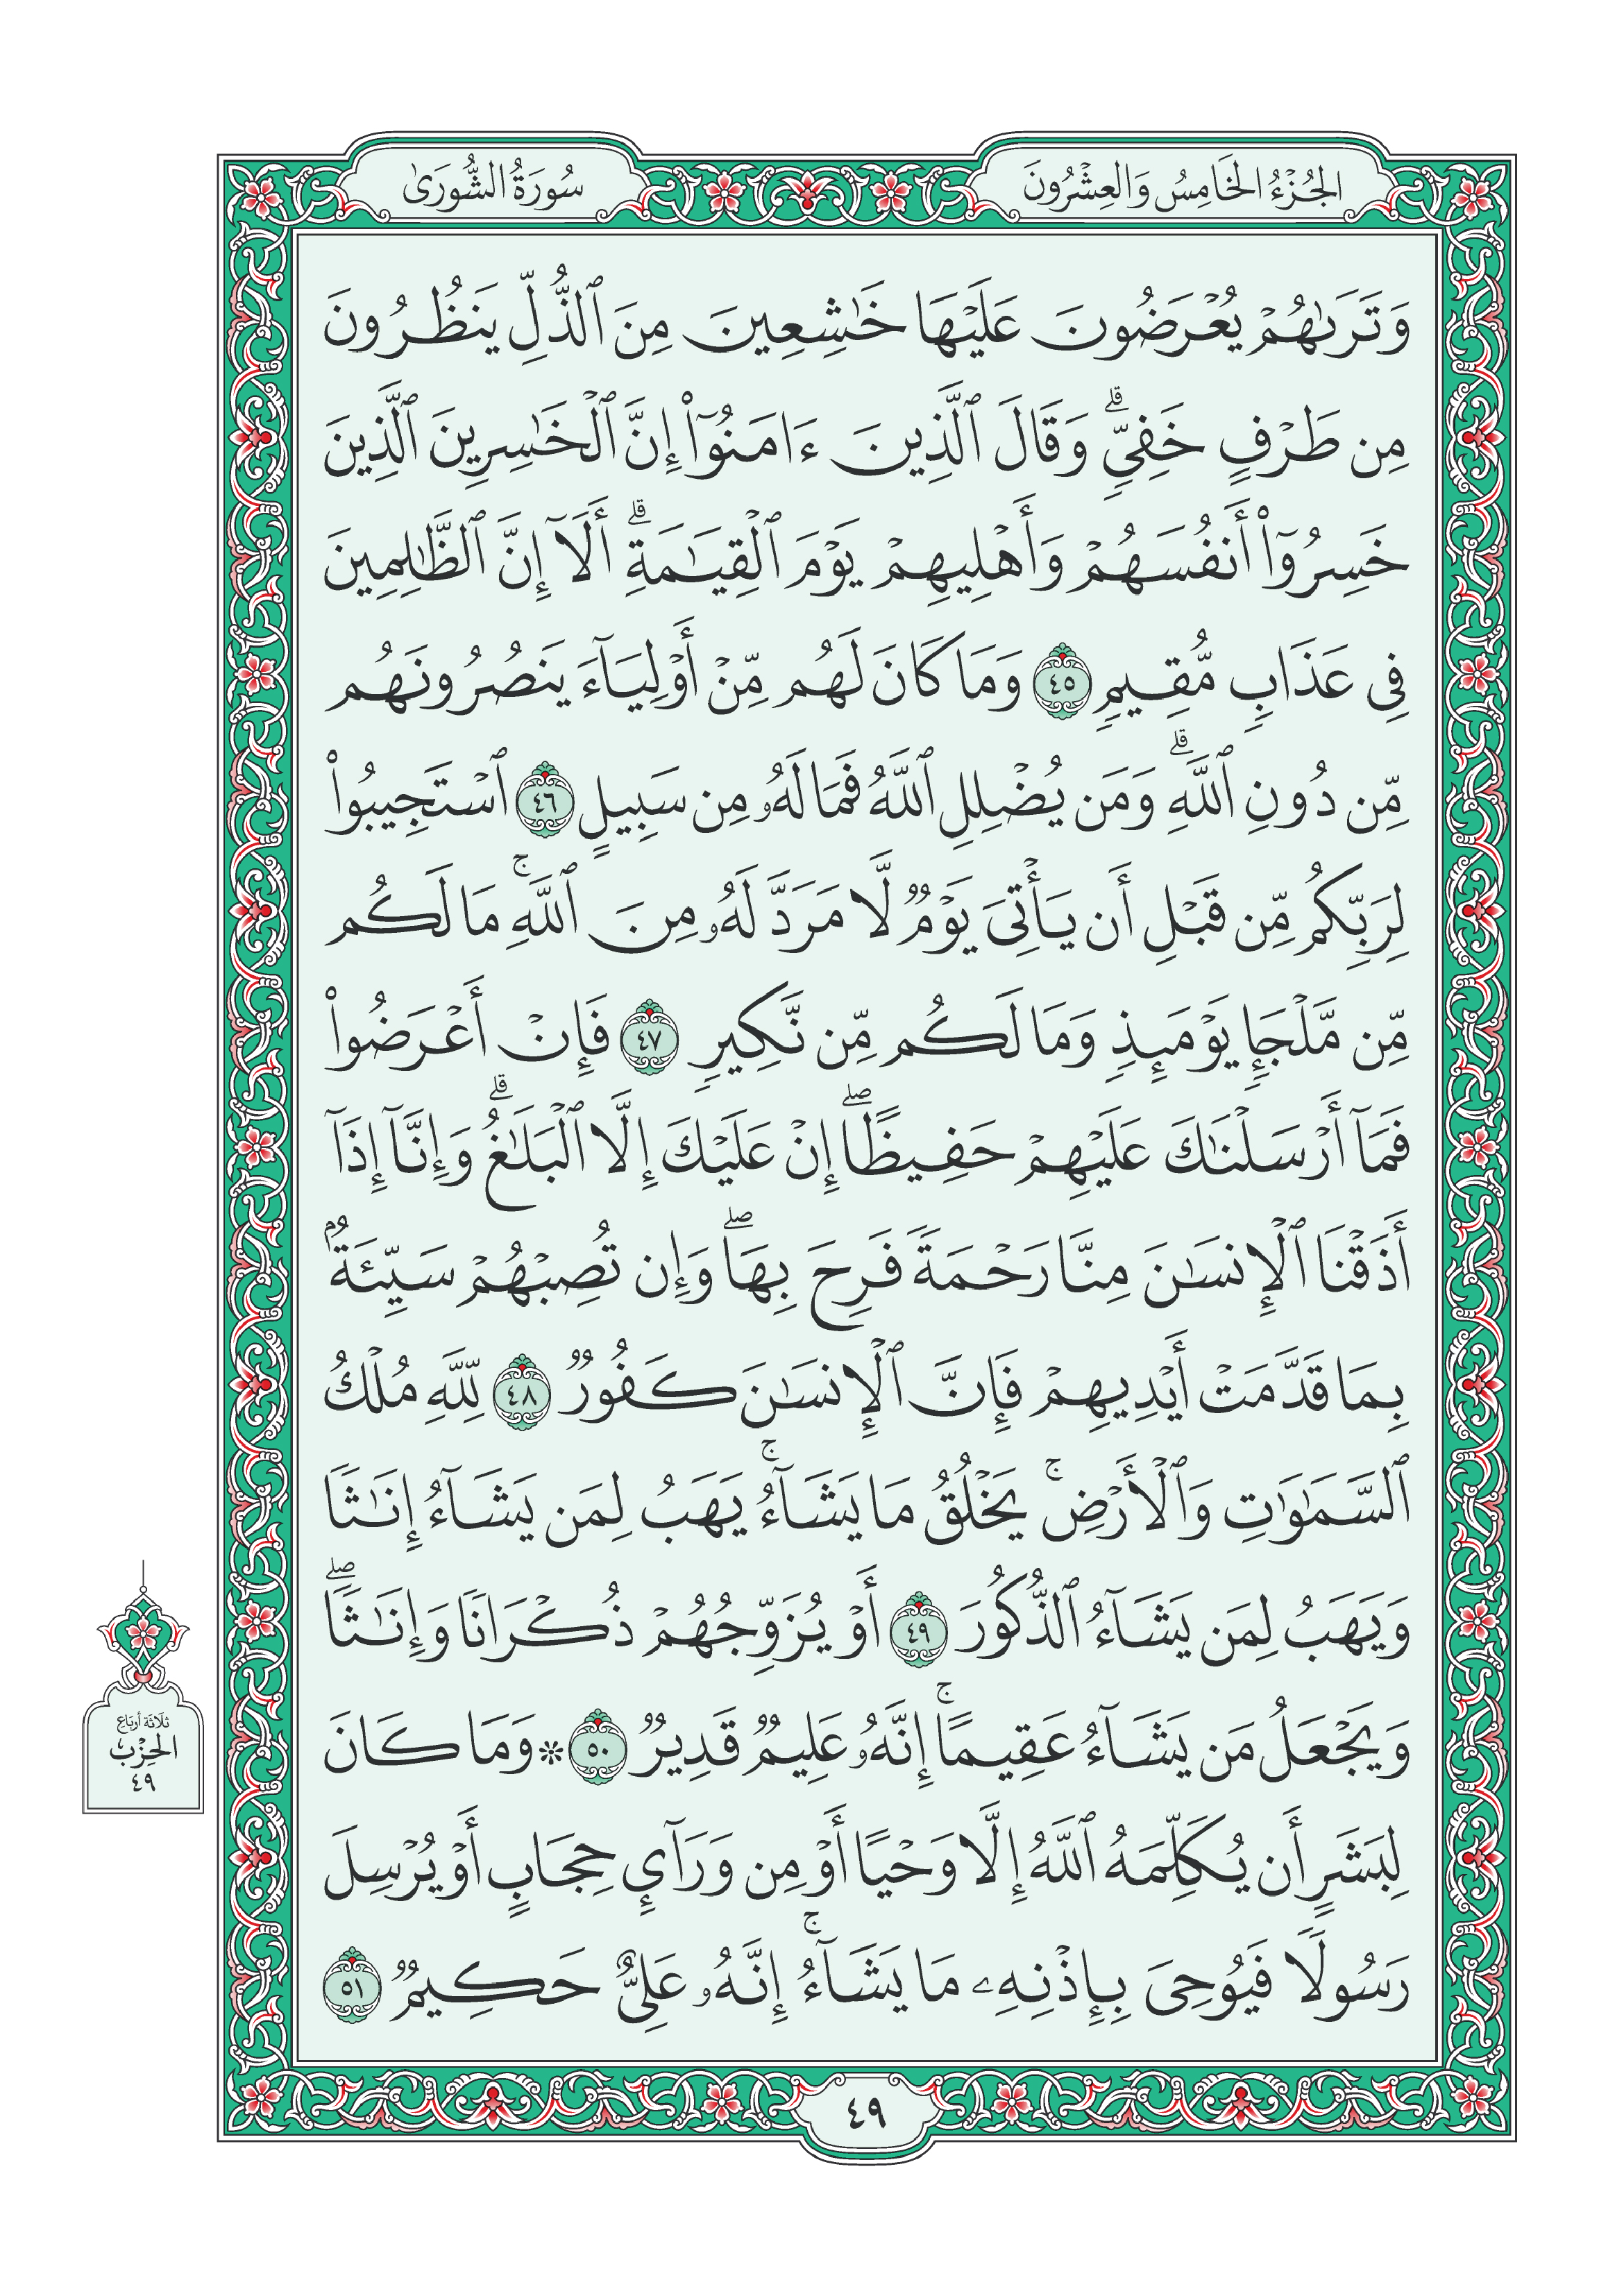 الجُزْءُ الخَامِسُ وَالعِشْرُونَ
سُورَةُ الشُّورَىٰ
وَتَرَىٰهُمْ يُعْرَضُونَ عَلَيْهَا خَٰشِعِينَ مِنَ ٱلذُّلِّ يَنظُرُونَ
مِن طَرْفٍ خَفِيٍّۗ وَقَالَ ٱلَّذِينَ ءَامَنُوٓا۟ إِنَّ ٱلْخَٰسِرِينَ ٱلَّذِينَ
خَسِرُوٓا۟ أَنفُسَهُمْ وَأَهْلِيهِمْ يَوْمَ ٱلْقِيَٰمَةِۗ أَلَآ إِنَّ ٱلظَّٰلِمِينَ
فِى عَذَابٍ مُّقِيمٍ ٤٥ وَمَا كَانَ لَهُم مِّنْ أَوْلِيَآءَ يَنصُرُونَهُم
مِّن دُونِ ٱللَّهِۗ وَمَن يُضْلِلِ ٱللَّهُ فَمَا لَهُۥ مِن سَبِيلٍ ٤٦ ٱسْتَجِيبُوا۟
لِرَبِّكُم مِّن قَبْلِ أَن يَأْتِىَ يَوْمٌ لَّا مَرَدَّ لَهُۥ مِنَ ٱللَّهِۚ مَا لَكُم
مِّن مَّلْجَإٍ يَوْمَئِذٍ وَمَا لَكُم مِّن نَّكِيرٍ ٤٧ فَإِنْ أَعْرَضُوا۟
فَمَآ أَرْسَلْنَٰكَ عَلَيْهِمْ حَفِيظًاۖ إِنْ عَلَيْكَ إِلَّا ٱلْبَلَٰغُۗ وَإِنَّآ إِذَآ
أَذَقْنَا ٱلْإِنسَٰنَ مِنَّا رَحْمَةً فَرِحَ بِهَاۖ وَإِن تُصِبْهُمْ سَيِّئَةٌۢ
بِمَا قَدَّمَتْ أَيْدِيهِمْ فَإِنَّ ٱلْإِنسَٰنَ كَفُورٌ ٤٨ لِّلَّهِ مُلْكُ
ٱلسَّمَٰوَٰتِ وَٱلْأَرْضِۚ يَخْلُقُ مَا يَشَآءُۚ يَهَبُ لِمَن يَشَآءُ إِنَٰثًا
وَيَهَبُ لِمَن يَشَآءُ ٱلذُّكُورَ ٤٩ أَوْ يُزَوِّجُهُمْ ذُكْرَانًا وَإِنَٰثًاۖ
وَيَجْعَلُ مَن يَشَآءُ عَقِيمًاۚ إِنَّهُۥ عَلِيمٌ قَدِيرٌ ٥٠ ۞ وَمَا كَانَ
لِبَشَرٍ أَن يُكَلِّمَهُ ٱللَّهُ إِلَّا وَحْيًا أَوْ مِن وَرَآئِ حِجَابٍ أَوْ يُرْسِلَ
رَسُولًا فَيُوحِىَ بِإِذْنِهِۦ مَا يَشَآءُۚ إِنَّهُۥ عَلِىٌّ حَكِيمٌ ٥١
ثلاثة أرباع
الحِزْب
٤٩
٤٩